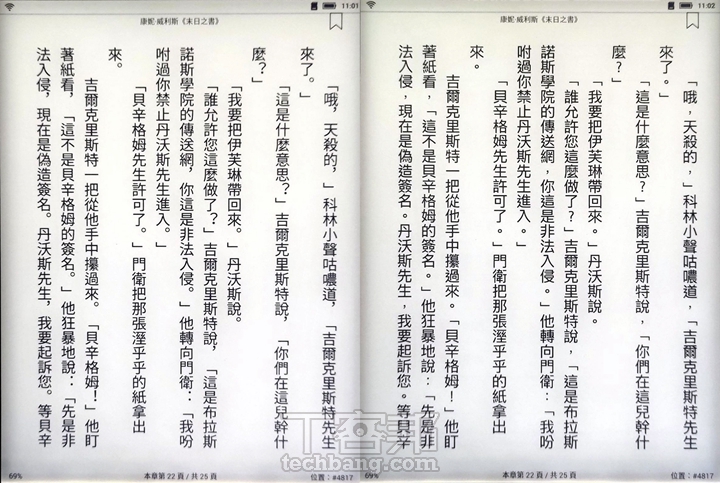 11:01
康妮·威利斯《末日之書》
「哦，天殺的，」科林小聲咕噥道，「吉爾克里斯特先生
來了。」
「這是什麼意思？」吉爾克里斯特說，「你們在這兒幹什
麼？」
「我要把伊芙琳帶回來。」丹沃斯說。
「誰允許您這麼做了？」吉爾克里斯特說，「這是布拉斯
諾斯學院的傳送網，你這是非法入侵。」他轉向門衛：「我吩
咐過你禁止丹沃斯先生進入。」
「貝辛格姆先生許可了。」門衛把那張溼乎乎的紙拿出
來。
吉爾克里斯特一把從他手中攥過來。「貝辛格姆！」他盯
著紙看，「這不是貝辛格姆的簽名。」他狂暴地說：「先是非
法入侵，現在是偽造簽名。丹沃斯先生，我要起訴您。等貝辛
69%
本章第 22 頁 / 共 25 頁
位置：#4817
11:02
康妮·威利斯《末日之書》
「哦，天殺的，」科林小聲咕噥道，「吉爾克里斯特先生
來了。」
「這是什麼意思？」吉爾克里斯特說，「你們在這兒幹什
麼？」
「我要把伊芙琳帶回來。」丹沃斯說。
「誰允許您這麼做了？」吉爾克里斯特說，「這是布拉斯
諾斯學院的傳送網，你這是非法入侵。」他轉向門衛：「我吩
咐過你禁止丹沃斯先生進入。」
「貝辛格姆先生許可了。」門衛把那張溼乎乎的紙拿出
來。
吉爾克里斯特一把從他手中攥過來。「貝辛格姆！」他盯
著紙看，「這不是貝辛格姆的簽名。」他狂暴地說：「先是非
法入侵，現在是偽造簽名。丹沃斯先生，我要起訴您。等貝辛
69%
本章第 22 頁 / 共 25 頁
位置：#4817
T客邦
techbang.com